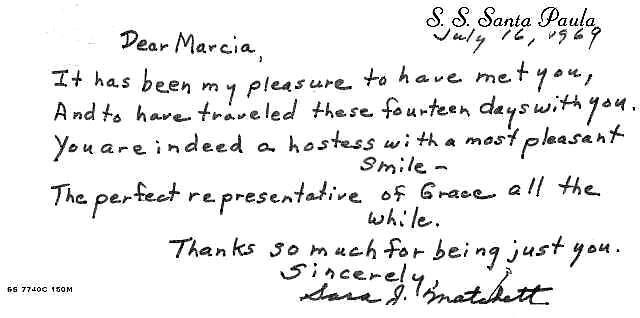 S. S. Santa Paula
July 16, 1969
Dear Marcia,
It has been my pleasure to have met you,
And to have traveled these fourteen days with you.
You are indeed a hostess with a most pleasant
Smile –
The perfect representative of Grace all the
while.
Thanks so much for being just you.
Sincerely,
Sara J. Matchett
SS 7740C 150M